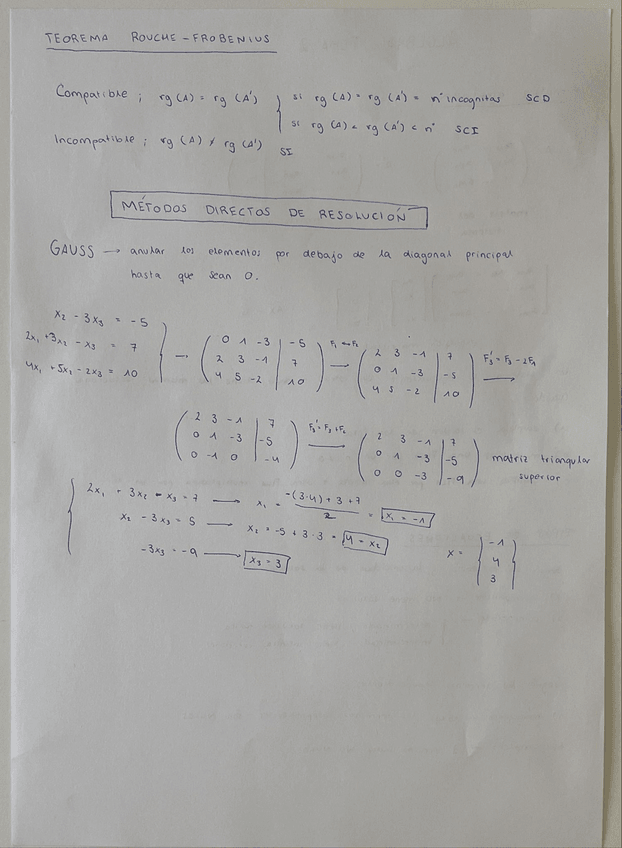 TEOREMA ROUCHE-FROBENIUS
Compatible ; rg (A) = rg (A') } si rg (A) = rg (A') = nº incognitas SCD
si rg (A) = rg (A') < nº SCI
Incompatible ; rg (A) ≠ rg (A') SI
MÉTODOS DIRECTOS DE RESOLUCIÓN
GAUSS → anular los elementos por debajo de la diagonal principal
hasta que sean 0.
x₂ - 3x₃ = -5
2x₁ + 3x₂ - x₃ = 7
4x₁ + 5x₂ - 2x₃ = 10
→ ( 0 1 -3 | -5
2 3 -1 | 7
4 5 -2 | 10 )
→ ( 2 3 -1 | 7
0 1 -3 | -5
4 5 -2 | 10 ) F₃' = F₃ - 2F₁ →
( 2 3 -1 | 7
0 1 -3 | -5
0 -1 0 | -4 ) F₃' = F₃ + F₂ →
( 2 3 -1 | 7
0 1 -3 | -5
0 0 -3 | -9 ) matriz triangular
superior
2x₁ + 3x₂ - x₃ = 7 → x₁ = (-(3·4) + 3 + 7)/2 = x₁ = -1
x₂ - 3x₃ = 5 → x₂ = -5 + 3·3 = 4 = x₂
-3x₃ = -9 → x₃ = 3
x = { -1
4
3 }